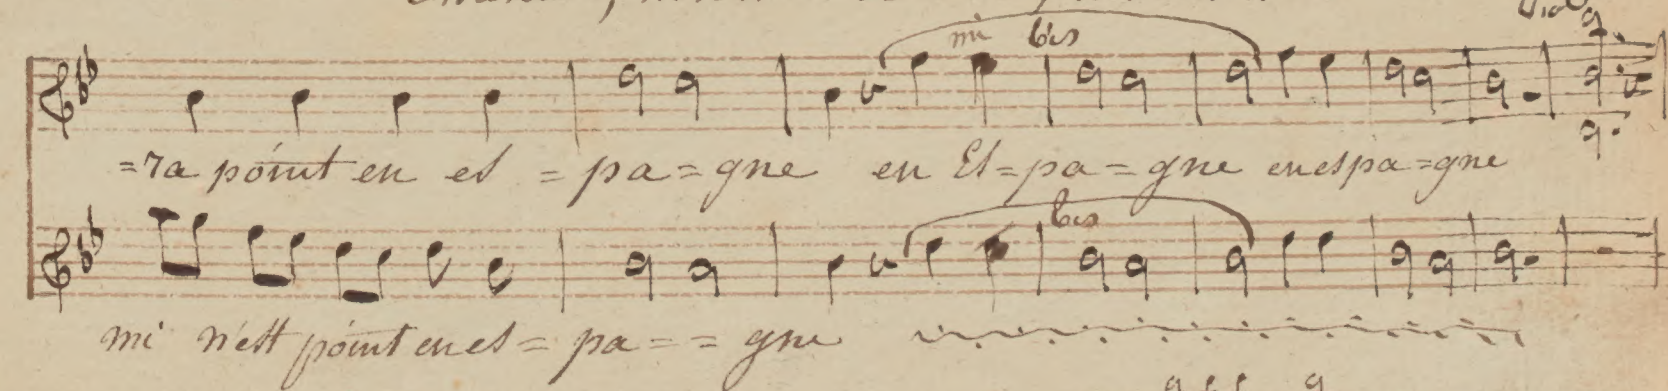 Viol
mi bis
=ra point en es = pa = gne en Es = pa = gne en espa = gne
bis
mi n'est point en es = pa = = gne